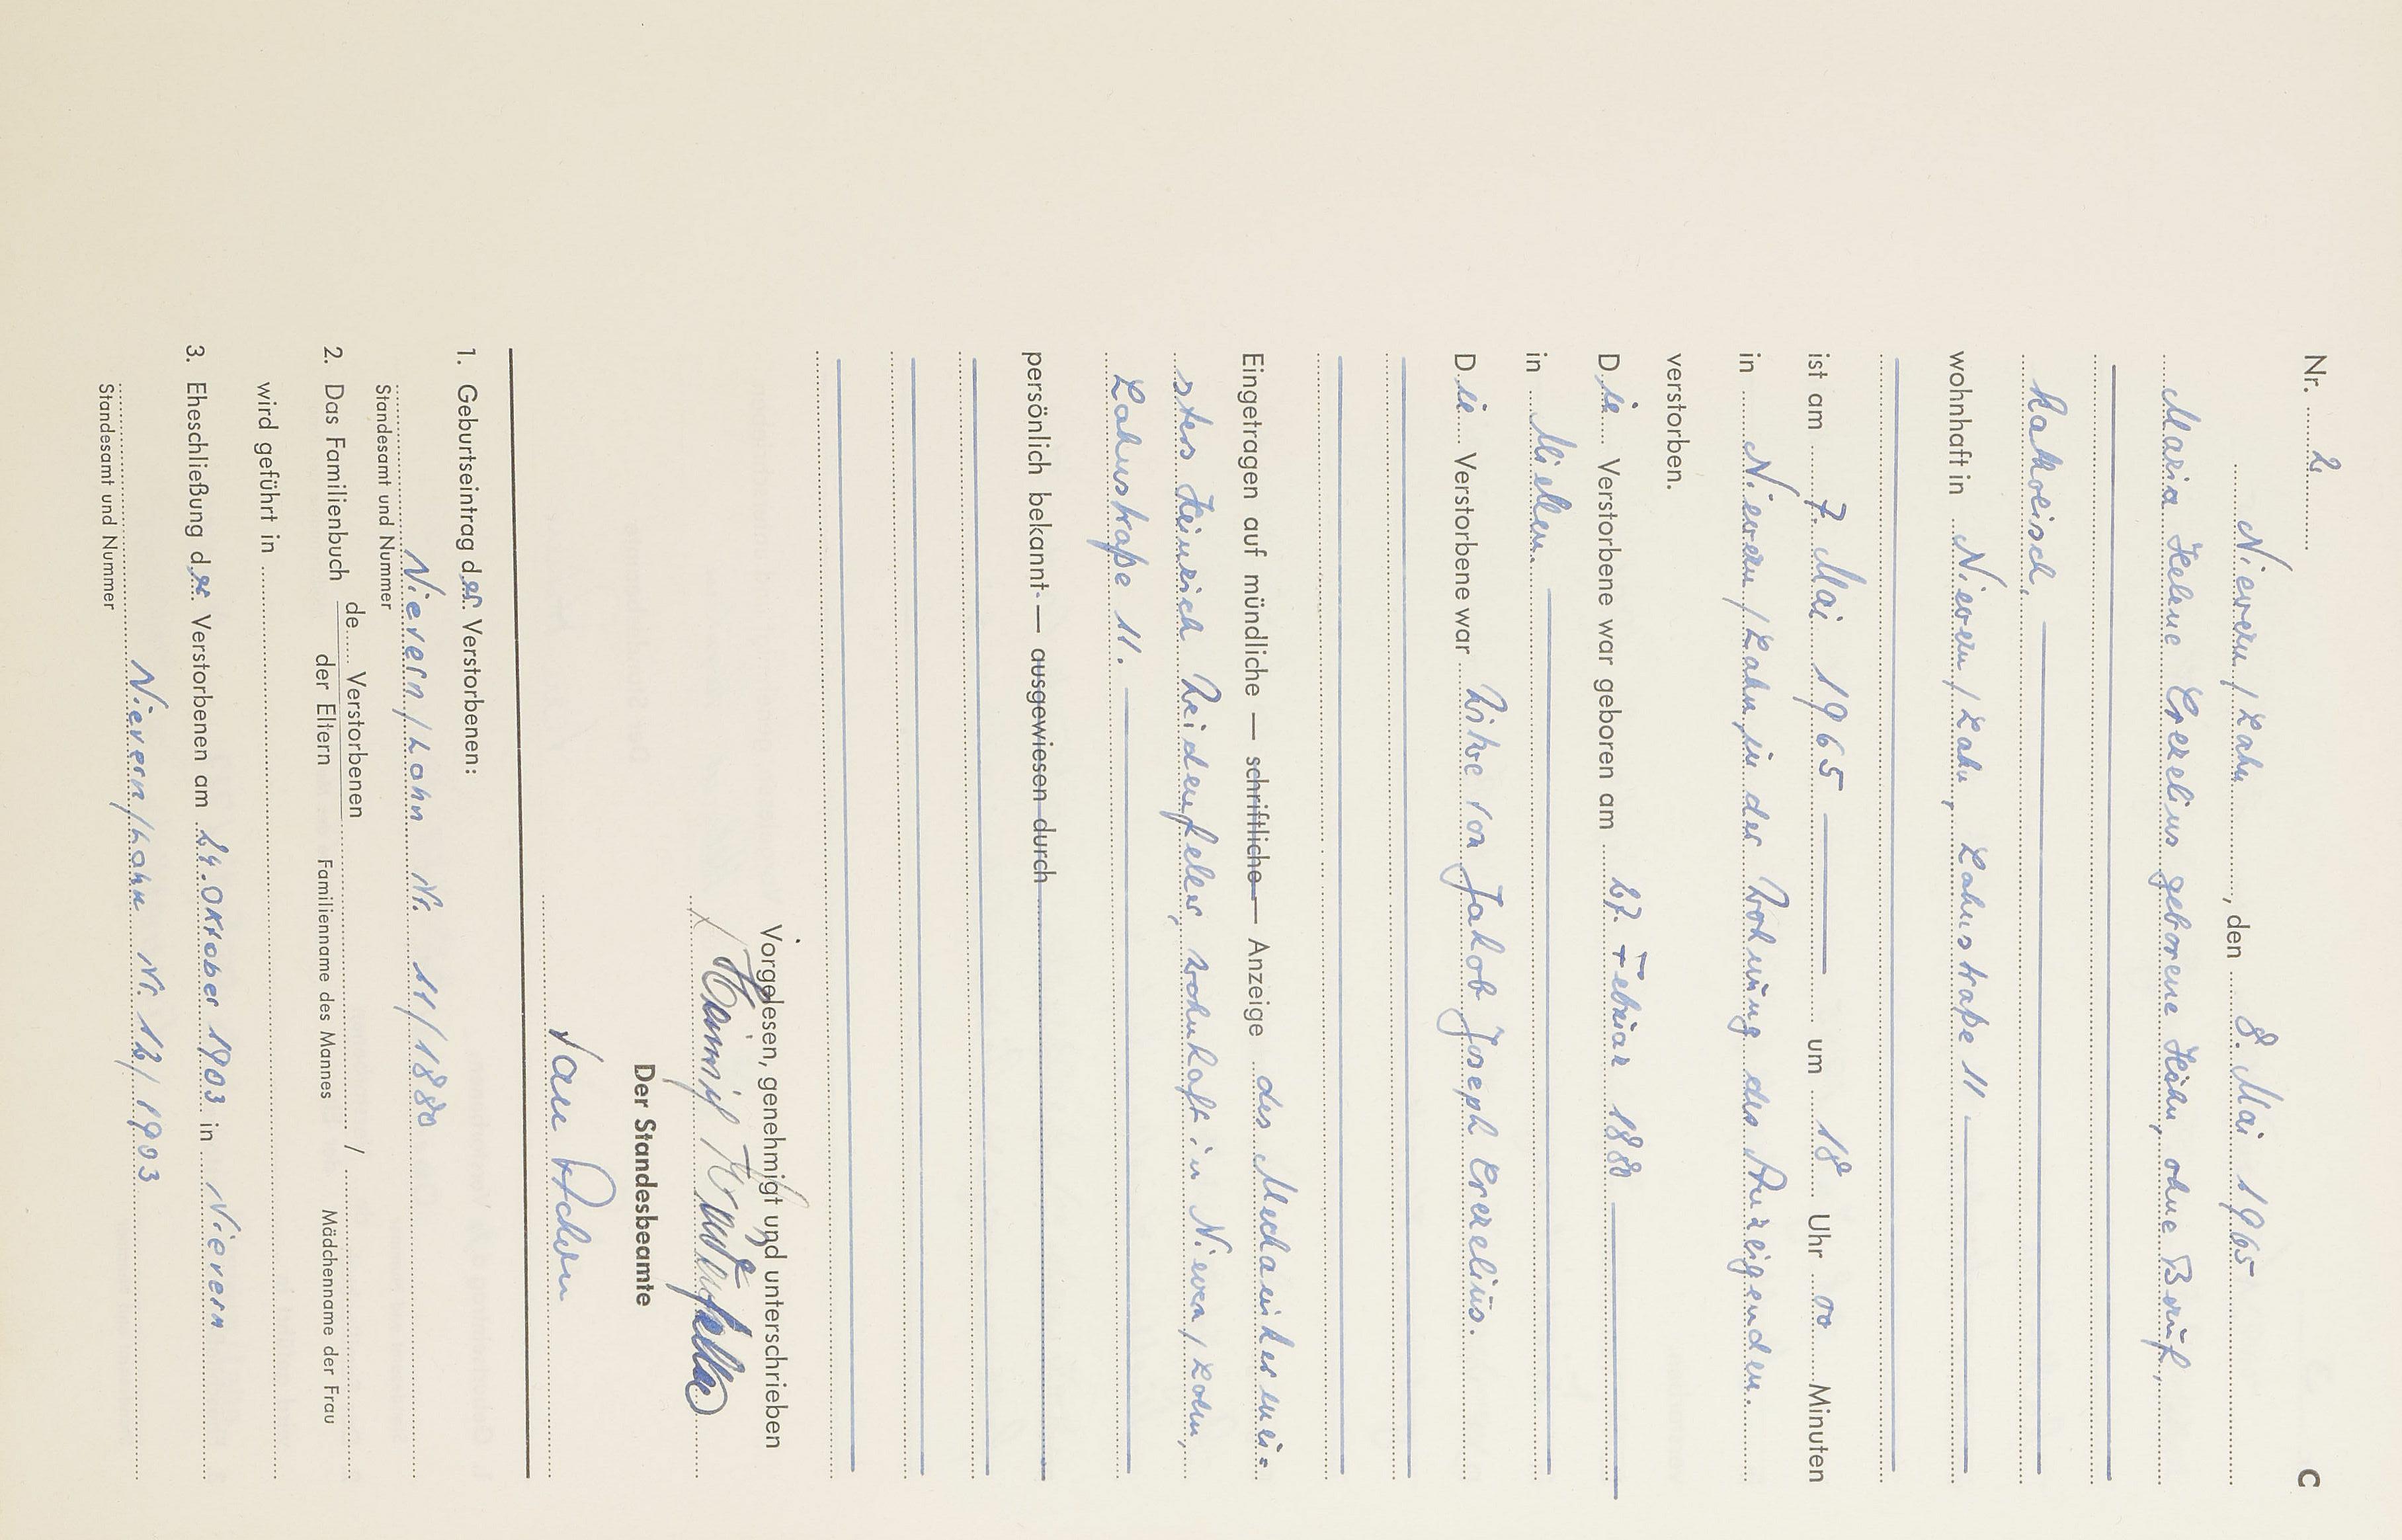 Nr. 2 C
Nievern / Lahn, den 8. Mai 1965
Maria Helene Crezelius geborene Hehn, ohne Beruf,
katholisch,
wohnhaft in Nievern / Lahn, Lahnstraße 11
ist am 7. Mai 1965 um 18 Uhr 00 Minuten
in Nievern / Lahn, in der Wohnung des Anzeigenden.
verstorben.
Die Verstorbene war geboren am 27. Februar 1880
in Miellen.
Die Verstorbene war Witwe von Jakob Joseph Crezelius.
Eingetragen auf mündliche — schriftliche — Anzeige des Mechanikermei=
sters Heinrich Weidenfeller, wohnhaft in Nievern / Lahn,
Lahnstraße 11.
persönlich bekannt. — ausgewiesen durch
Vorgelesen, genehmigt und unterschrieben
Der Standesbeamte
1. Geburtseintrag der Verstorbenen:
Nievern/Lahn Nr. 11/1880
Standesamt und Nummer
2. Das Familienbuch de Verstorbenen / der Eltern
Familienname des Mannes Mädchenname der Frau
wird geführt in
3. Eheschließung der Verstorbenen am 24. Oktober 1903 in Nievern
Nievern/Lahn Nr. 12/1903
Standesamt und Nummer